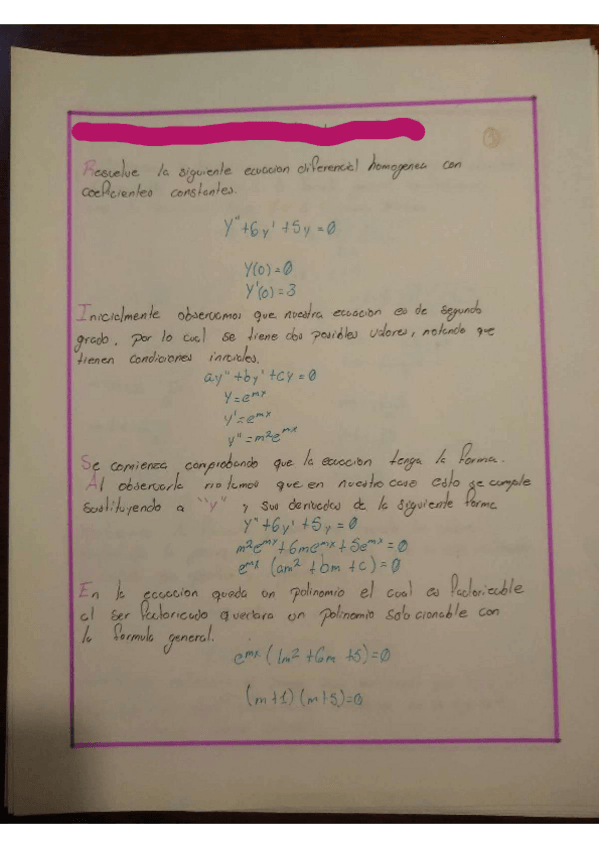 Resuelve la siguiente ecuacion diferencial homogenea con
coeficientes constantes.
y"+6y'+5y=0
y(0)=0
y'(0)=3
Inicialmente observamos que nuestra ecuacion es de segundo
grado, por lo cual se tiene dos posibles valores, notando que
tienen condiciones iniciales.
ay"+by'+cy=0
y=e^mx
y'=e^mx
y"=m²e^mx
Se comienza comprobando que la ecuacion tenga la forma.
Al observarla notamos que en nuestro caso esto se cumple
sustituyendo a "y" y sus derivadas de la siguiente forma
y"+6y'+5y=0
m²e^mx+6me^mx+5e^mx=0
e^mx (am²+bm+c)=0
En la ecuacion queda un polinomio el cual es factorizable
al ser factorizado quedara un polinomio solucionable con
la formula general.
e^mx(1m²+6m+5)=0
(m+1)(m+5)=0